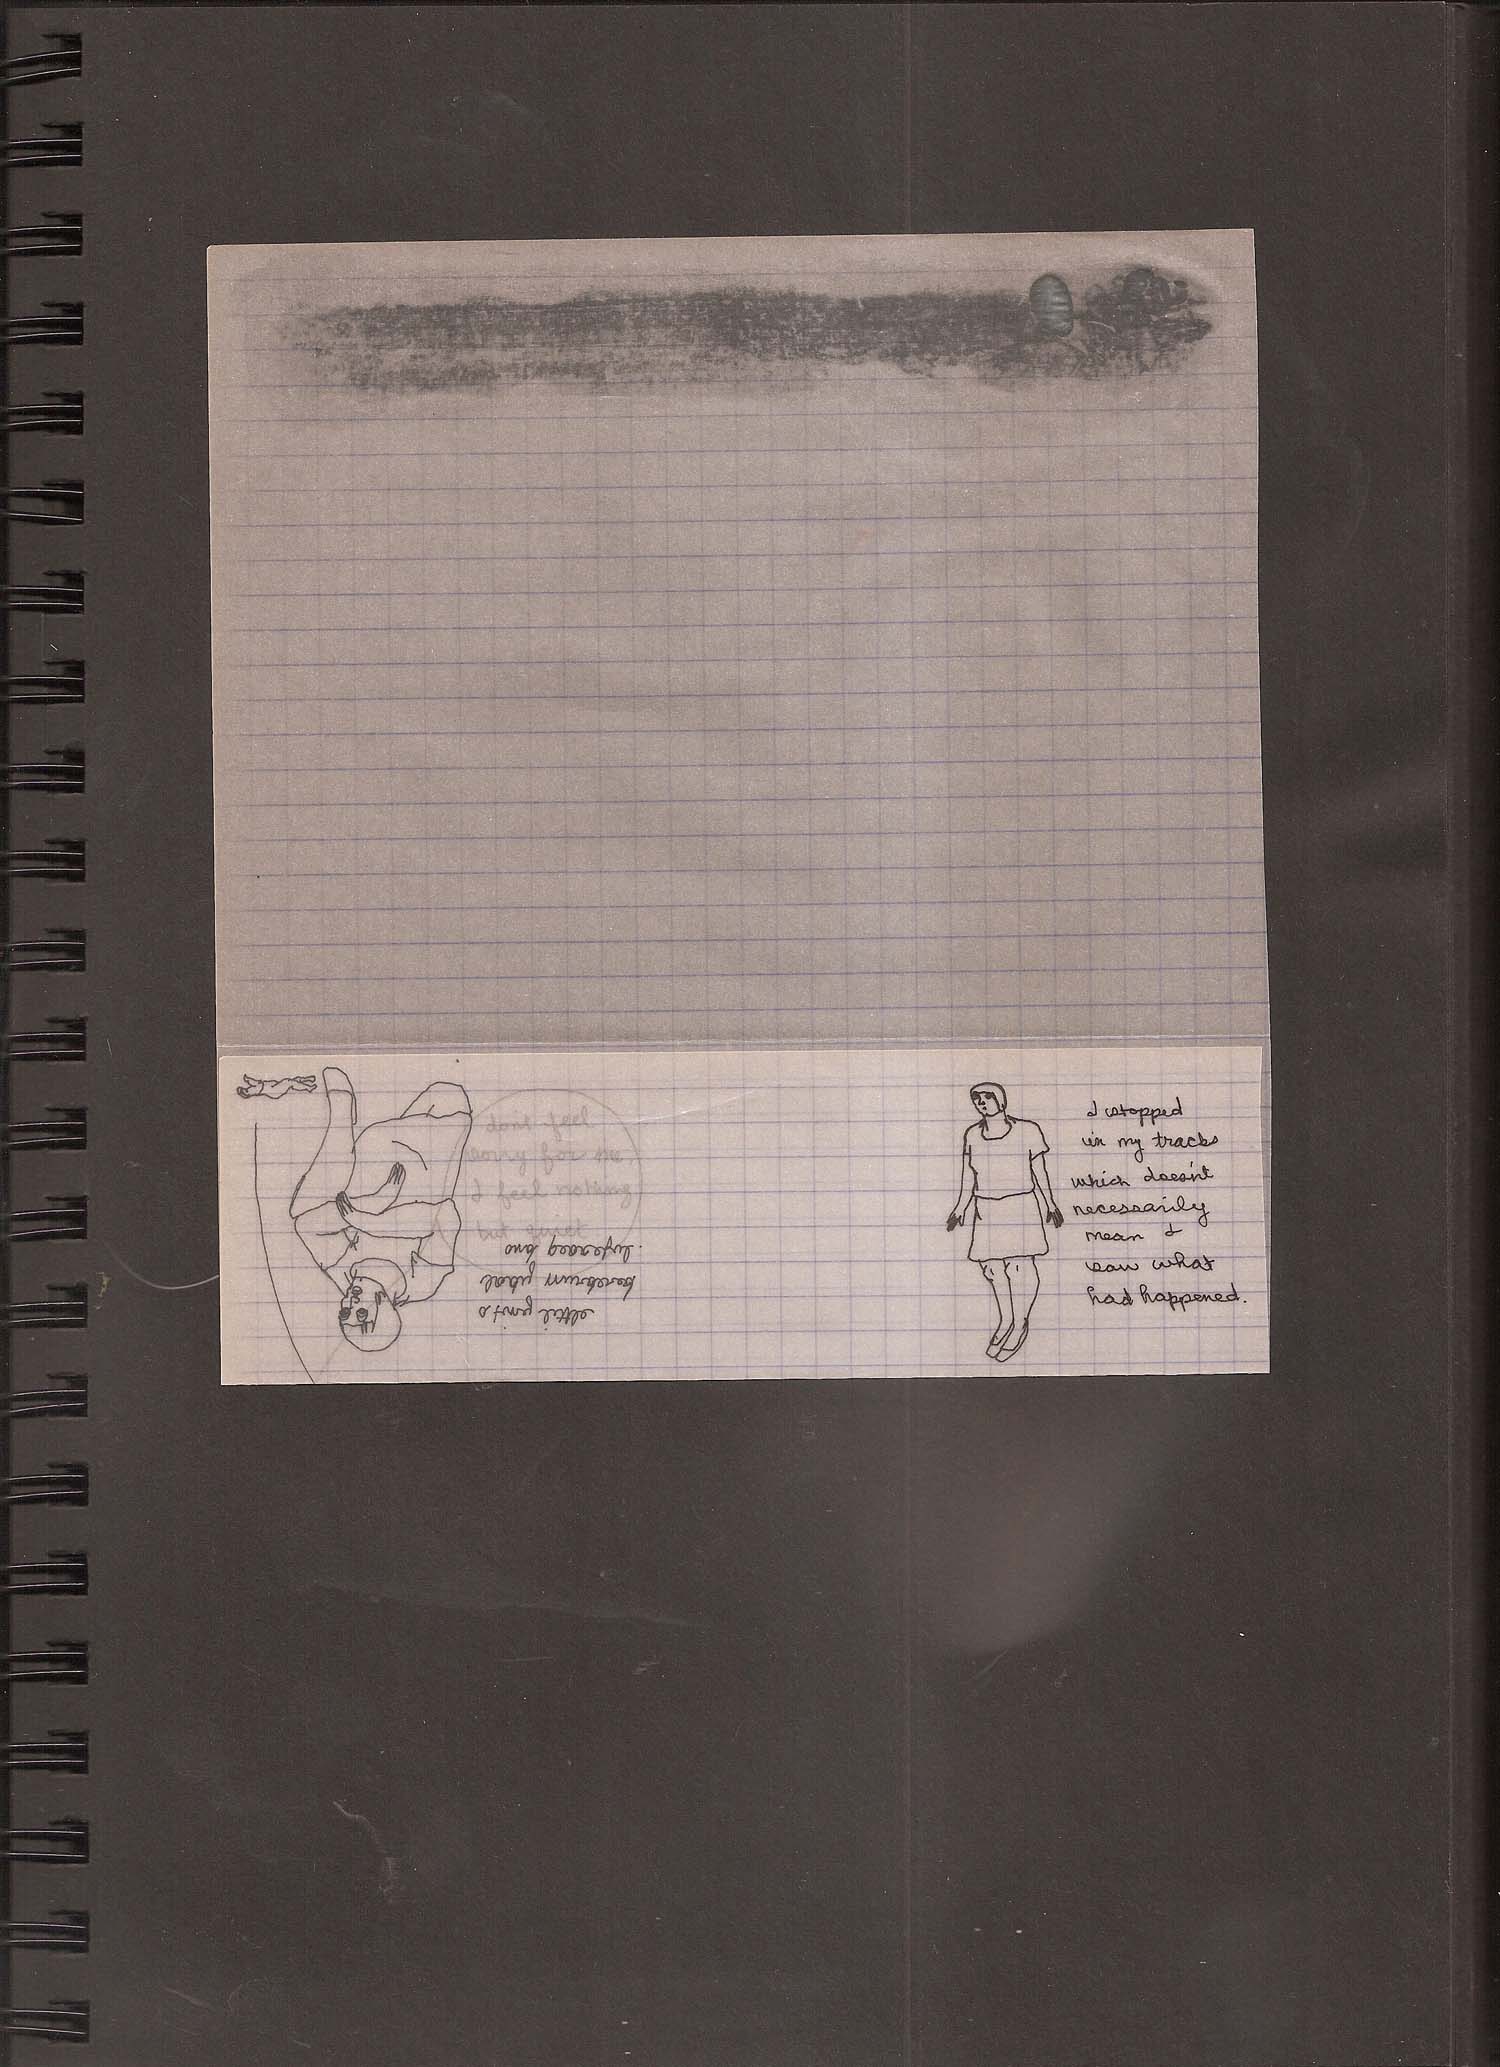 dont feel
sorry for me.
I feel nothing
but quiet
tiny little
body
and
I stopped
in my tracks
which doesn't
necessarily
mean I
saw what
had happened.